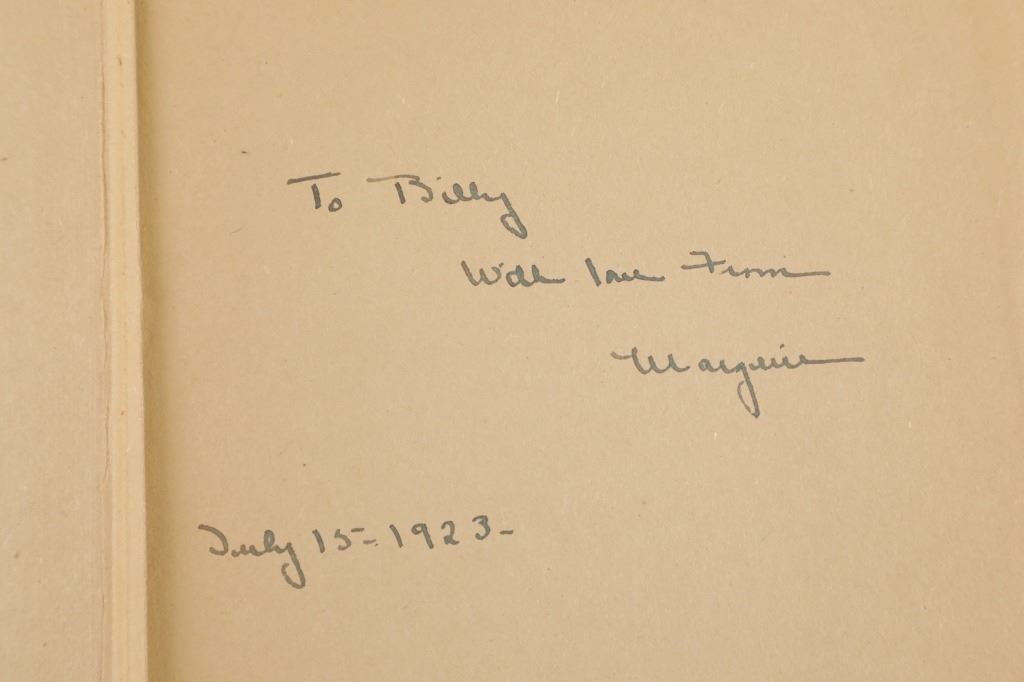 To Billy
With love From
Marjorie
July 15 - 1923 -